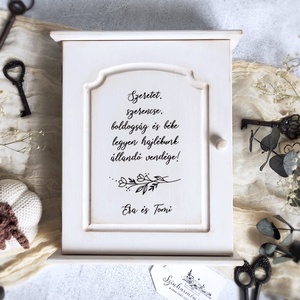 Szeretet,
szerencse,
boldogság és béke
legyen hajlékunk
állandó vendége!
Éva és Tomi